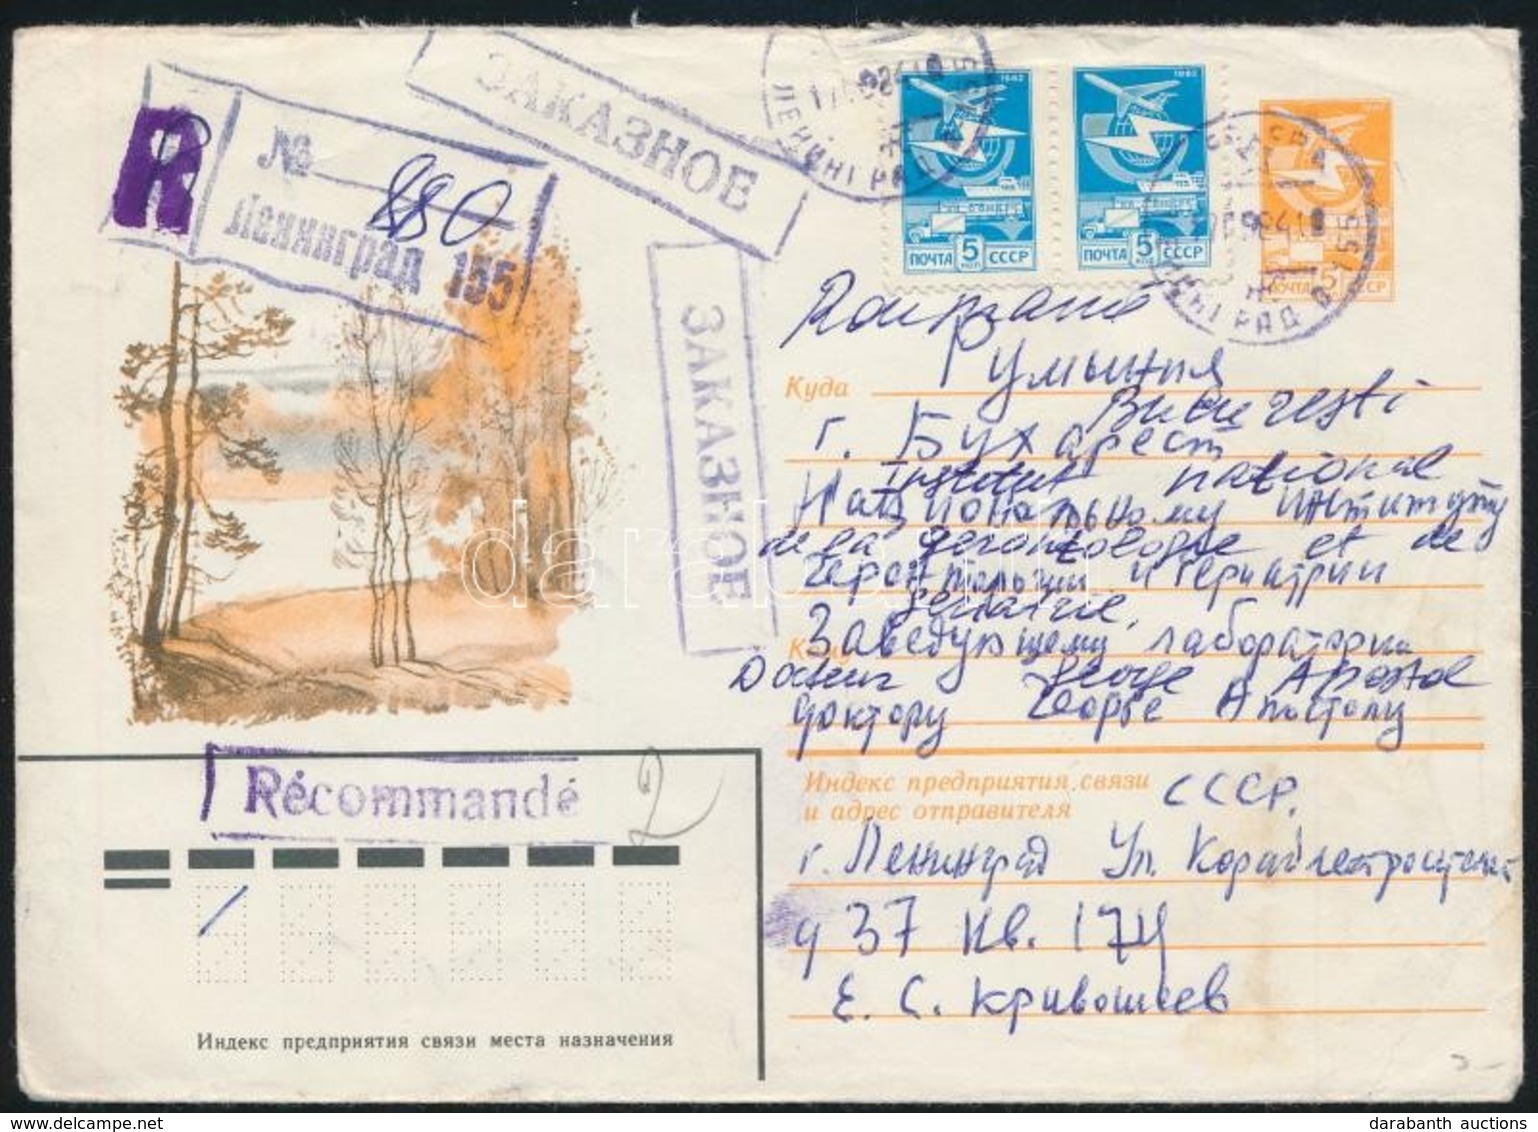 ЗАКАЗНОЕ
R
№ 880
Ленинград 155
ЗАКАЗНОЕ
ЛЕНИНГРАД
1982
ПОЧТА 5 КОП СССР
1982
ПОЧТА 5 КОП СССР
ПОЧТА 5 СССР
155
Румыния
Куда
Bucuresti
г. Бухарест
institut national
Национальному институту
de la gerontologie et de
геронтологии и гериатрии
geriatrie.
Кому
Заведующему лаборатории
George Apostol
доктору Георге Апостолу
Индекс предприятия связи
и адрес отправителя
СССР.
г. Ленинград Ул. Кораблестроителей
д 37 кв. 174
Е. С. Кривошеев
Récommandé
2
Индекс предприятия связи места назначения
darabanth
darabanth auctions